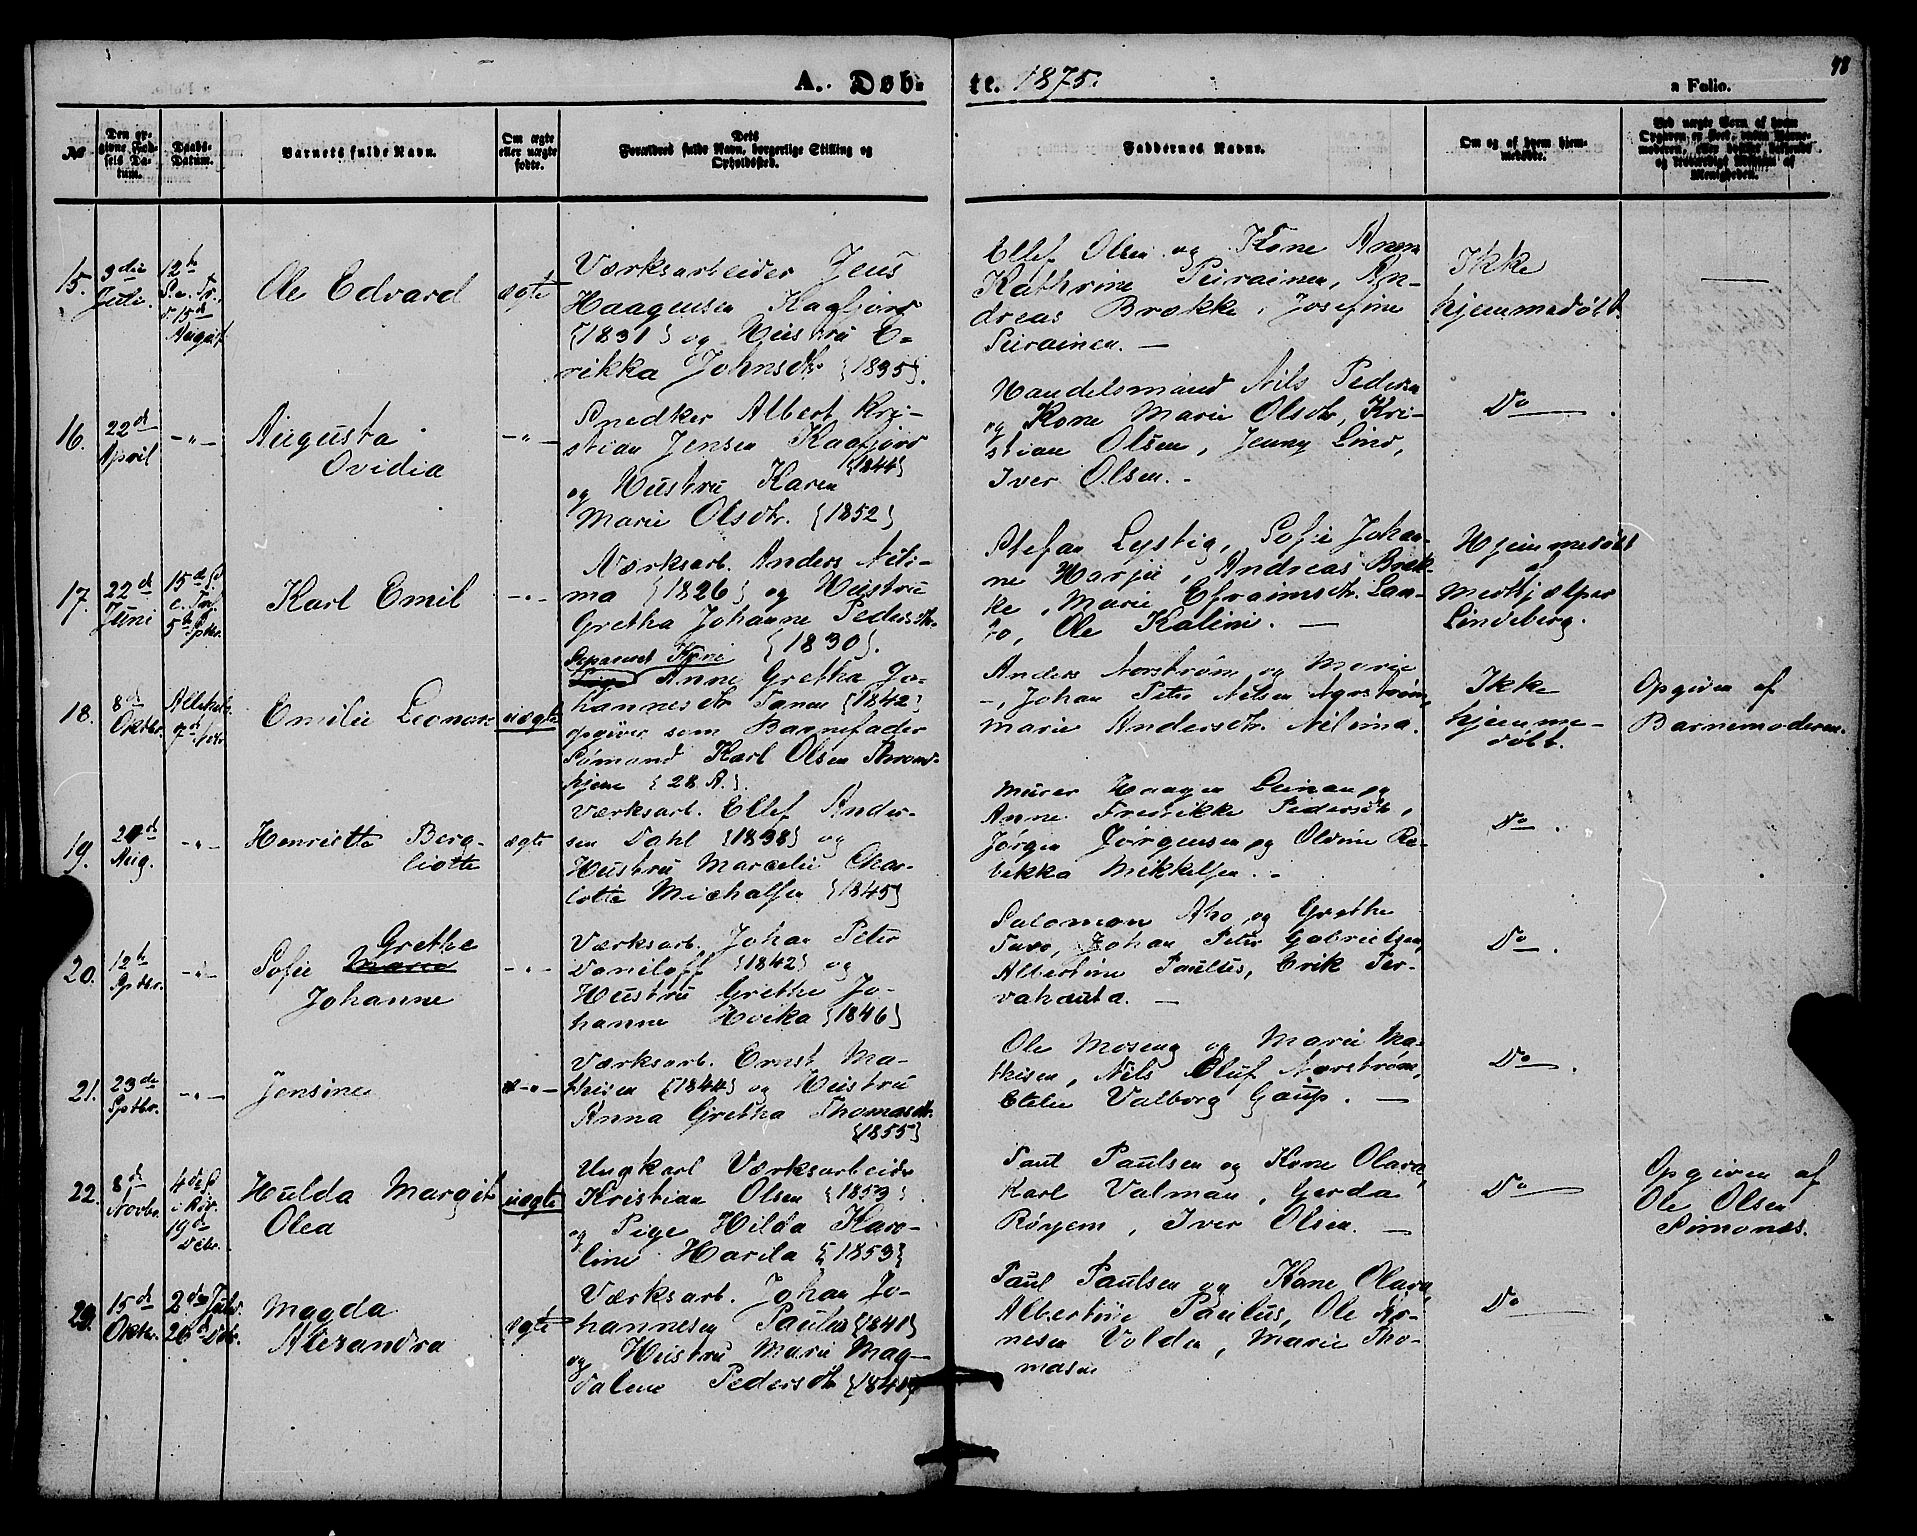 48
A. Døb-
te. 1875.
a Folio.
No
Den opgivne Fødsels Datum.
Daabs-Datum.
Barnets fulde Navn.
Om ægte eller uægte fødte.
Dets Forældres fulde Navn, borgerlige Stilling og Opholdssted.
Faddernes Navne.
Om og af hvem hjemmedøbte.
15.
3die
Juli
12te
S. e. Tr.
d. 15d
August
Ole Edvard
ægte
Værksarbeider Jens
Haagensen Kaafjord
{1831} og Hustru E-
rikka Johnsdtr {1835}.
Ellef Olsen og Kone Anna
Kathrine Peirainen, An-
dreas Brække, Josefine
Peirainen. —
Ikke
hjemmedøbt.
16.
22d
April
-"-
Augusta
Ovidia
-"-
Snedker Albert Kri-
stian Jensen Kaafjord
{1844}
og Hustru Karen
Marie Olsdtr. {1852}
Handelsmand Nils Pedersen
og Kone Marie Olsdtr, Kri-
stian Olsen, Jenny Lind,
Iver Olsen. -
Do.
17.
22d
Juni
15d S.
e. Tr.
5te Sptbr.
Karl Emil
-"-
Værksarb. Anders Nili-
ma {1826} og Hustru
Gretha Johanne Pedersdtr.
{1830}.
Stefan Lystig, Sofie Johan-
ne Harju, Andreas Bræk-
ke, Marie Efraimsdtr. Lan-
to, Ole Kalini. —
Hjemmedøbt
af
Medhjælper
Lindeberg.
18.
8d
Oktbr.
Emilie Leonore
uægte
Separeret Kone
Anne Gretha Jo-
hannesdtr Tanen {1842}
opgiver som Barnefader
Sømand Karl Olsen Thrond-
hjem {28 A.}.
Anders Norstrøm og Marie
-, Johan Peter Nilsen Norstrøm,
Marie Andersdtr. Nilima.
Ikke
hjemme-
døbt.
Opgiven af
Barnemoderen.
19.
Aug.
-"-
Henriette Berg-
liotte
ægte
Værksarb. Ellef Ander-
sen Dahl {1838} og
Hustru Marcelie Char-
lotte Michalsen {1845}
Murer Haagen Leinan og
Anne Fredrikke Pedersdtr,
Jørgen Jørgensen og Oldine Re-
bekka Mikkelsen. -
Do.
20.
12te
Sptbr.
-"-
Grethe
Sofie Marie
Johanne
-"-
Værksarb. Johan Peter
Daniloff {1842} og
Hustru Grethe Jo-
hanne Hvika {1846}
Salomon Aho og Grethe
Savo, Johan Peter Gabrielsen,
Albertine Paulus, Erik Per-
vahauta. —
Do.
21.
23de
Sptbr.
-"-
Jensine
-"-
Værksarb. Ernst Ma-
thisen {1844} og Hustru
Anna Gretha Thomasdtr.
{1855}
Ole Moseng og Marie Ma-
thisen, Nils Oluf Norstrøm,
Elele Valborg Gaup. —
Do.
22.
8d
Novbr.
4de S.
i Adv.
19d
Dcbr.
Hulda Margit
Olea
uægte
Ungkarl Værksarbeider
Kristian Olsen {1853}
og Pige Hilda Karo-
line Harila {1853}
Paul Paulsen og Kone Olava,
Karl Valman, Gerda
Røyem, Iver Olsen. —
Do
Opgiven af
Ole Olsen
Simonæs.
23.
15d
Oktbr.
2den Juled.
26d Dcbr.
Magda
Alexandra
ægte
Værksarb. Johan Jo-
hannesen Paulus {1841}
og Hustru Marie Mag-
dalene Pedersdtr {1841}
Paul Paulsen og Kone Olava,
Albertine Paulus, Ole Jo-
nesen Volden, Marie Tho-
masen
Do